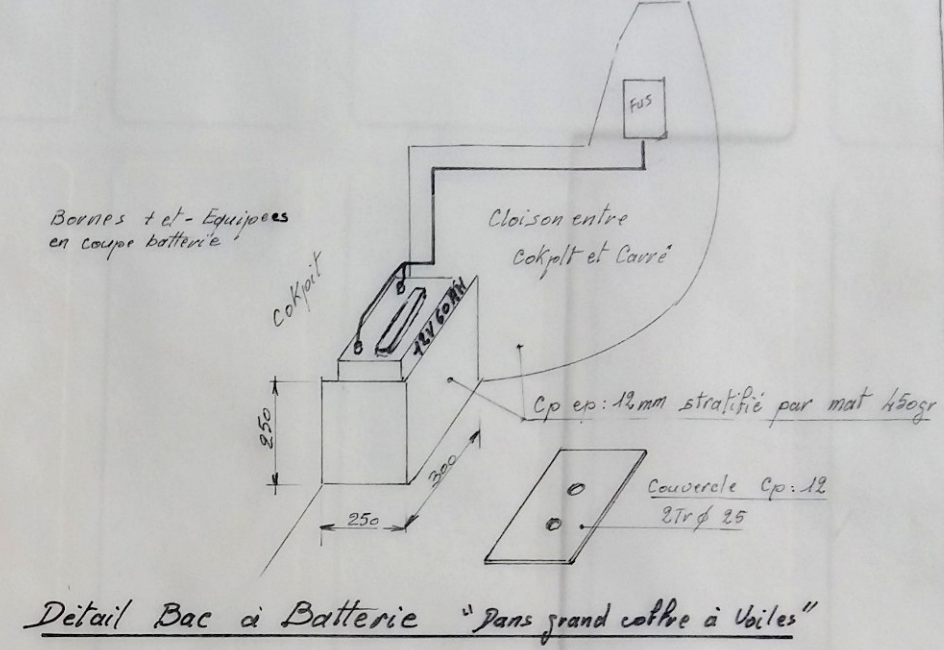 FUS
Bornes + et - Equipees
en coupe batterie
Cloison entre
Cokpit et Carré
Cokpit
12V 60AH
Cp ep: 12mm stratifié par mat 450gr
250
300
250
Couvercle Cp: 12
2Tr ϕ 25
Détail Bac à Batterie "Dans grand coffre à Voiles"